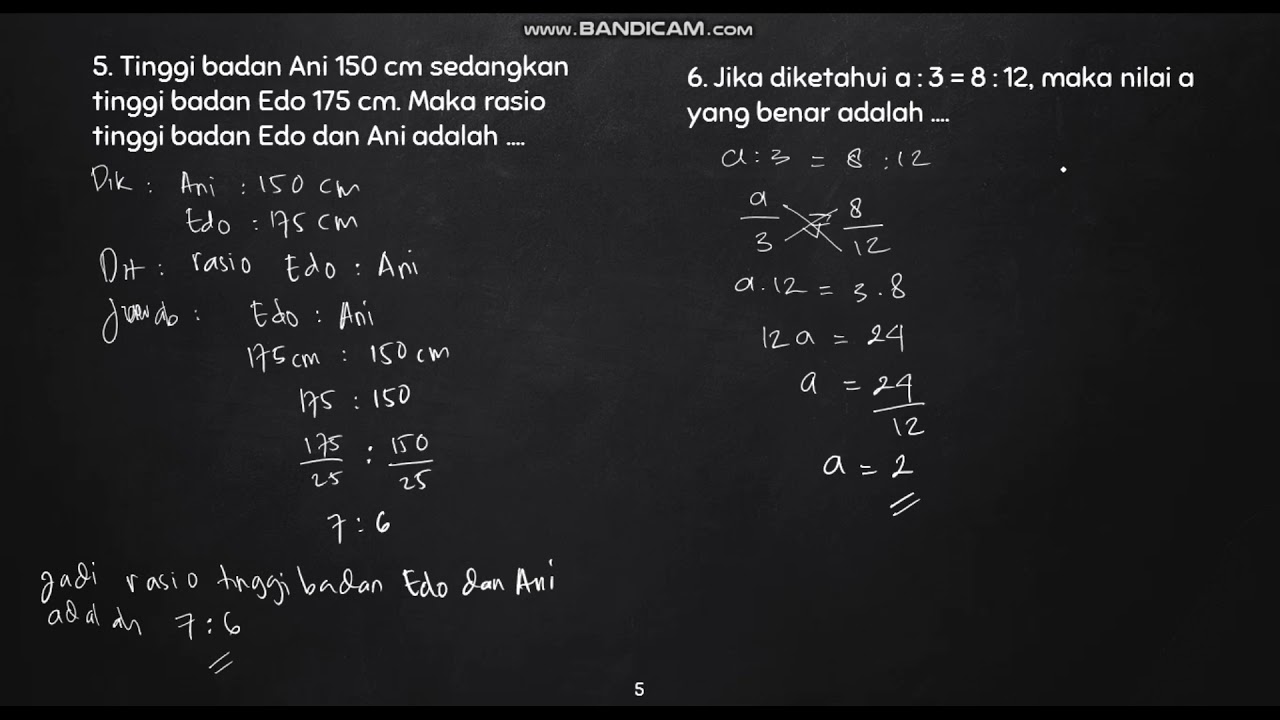 www.BANDICAM.com
5. Tinggi badan Ani 150 cm sedangkan
tinggi badan Edo 175 cm. Maka rasio
tinggi badan Edo dan Ani adalah ....
Dik : Ani : 150 cm
Edo : 175 cm
Dit : rasio Edo : Ani
Jawab : Edo : Ani
175 cm : 150 cm
175 : 150
175/25 : 150/25
7 : 6
Jadi rasio tinggi badan Edo dan Ani
adalah 7 : 6
6. Jika diketahui a : 3 = 8 : 12, maka nilai a
yang benar adalah ....
a : 3 = 8 : 12
a/3 = 8/12
a . 12 = 3 . 8
12 a = 24
a = 24/12
a = 2
5